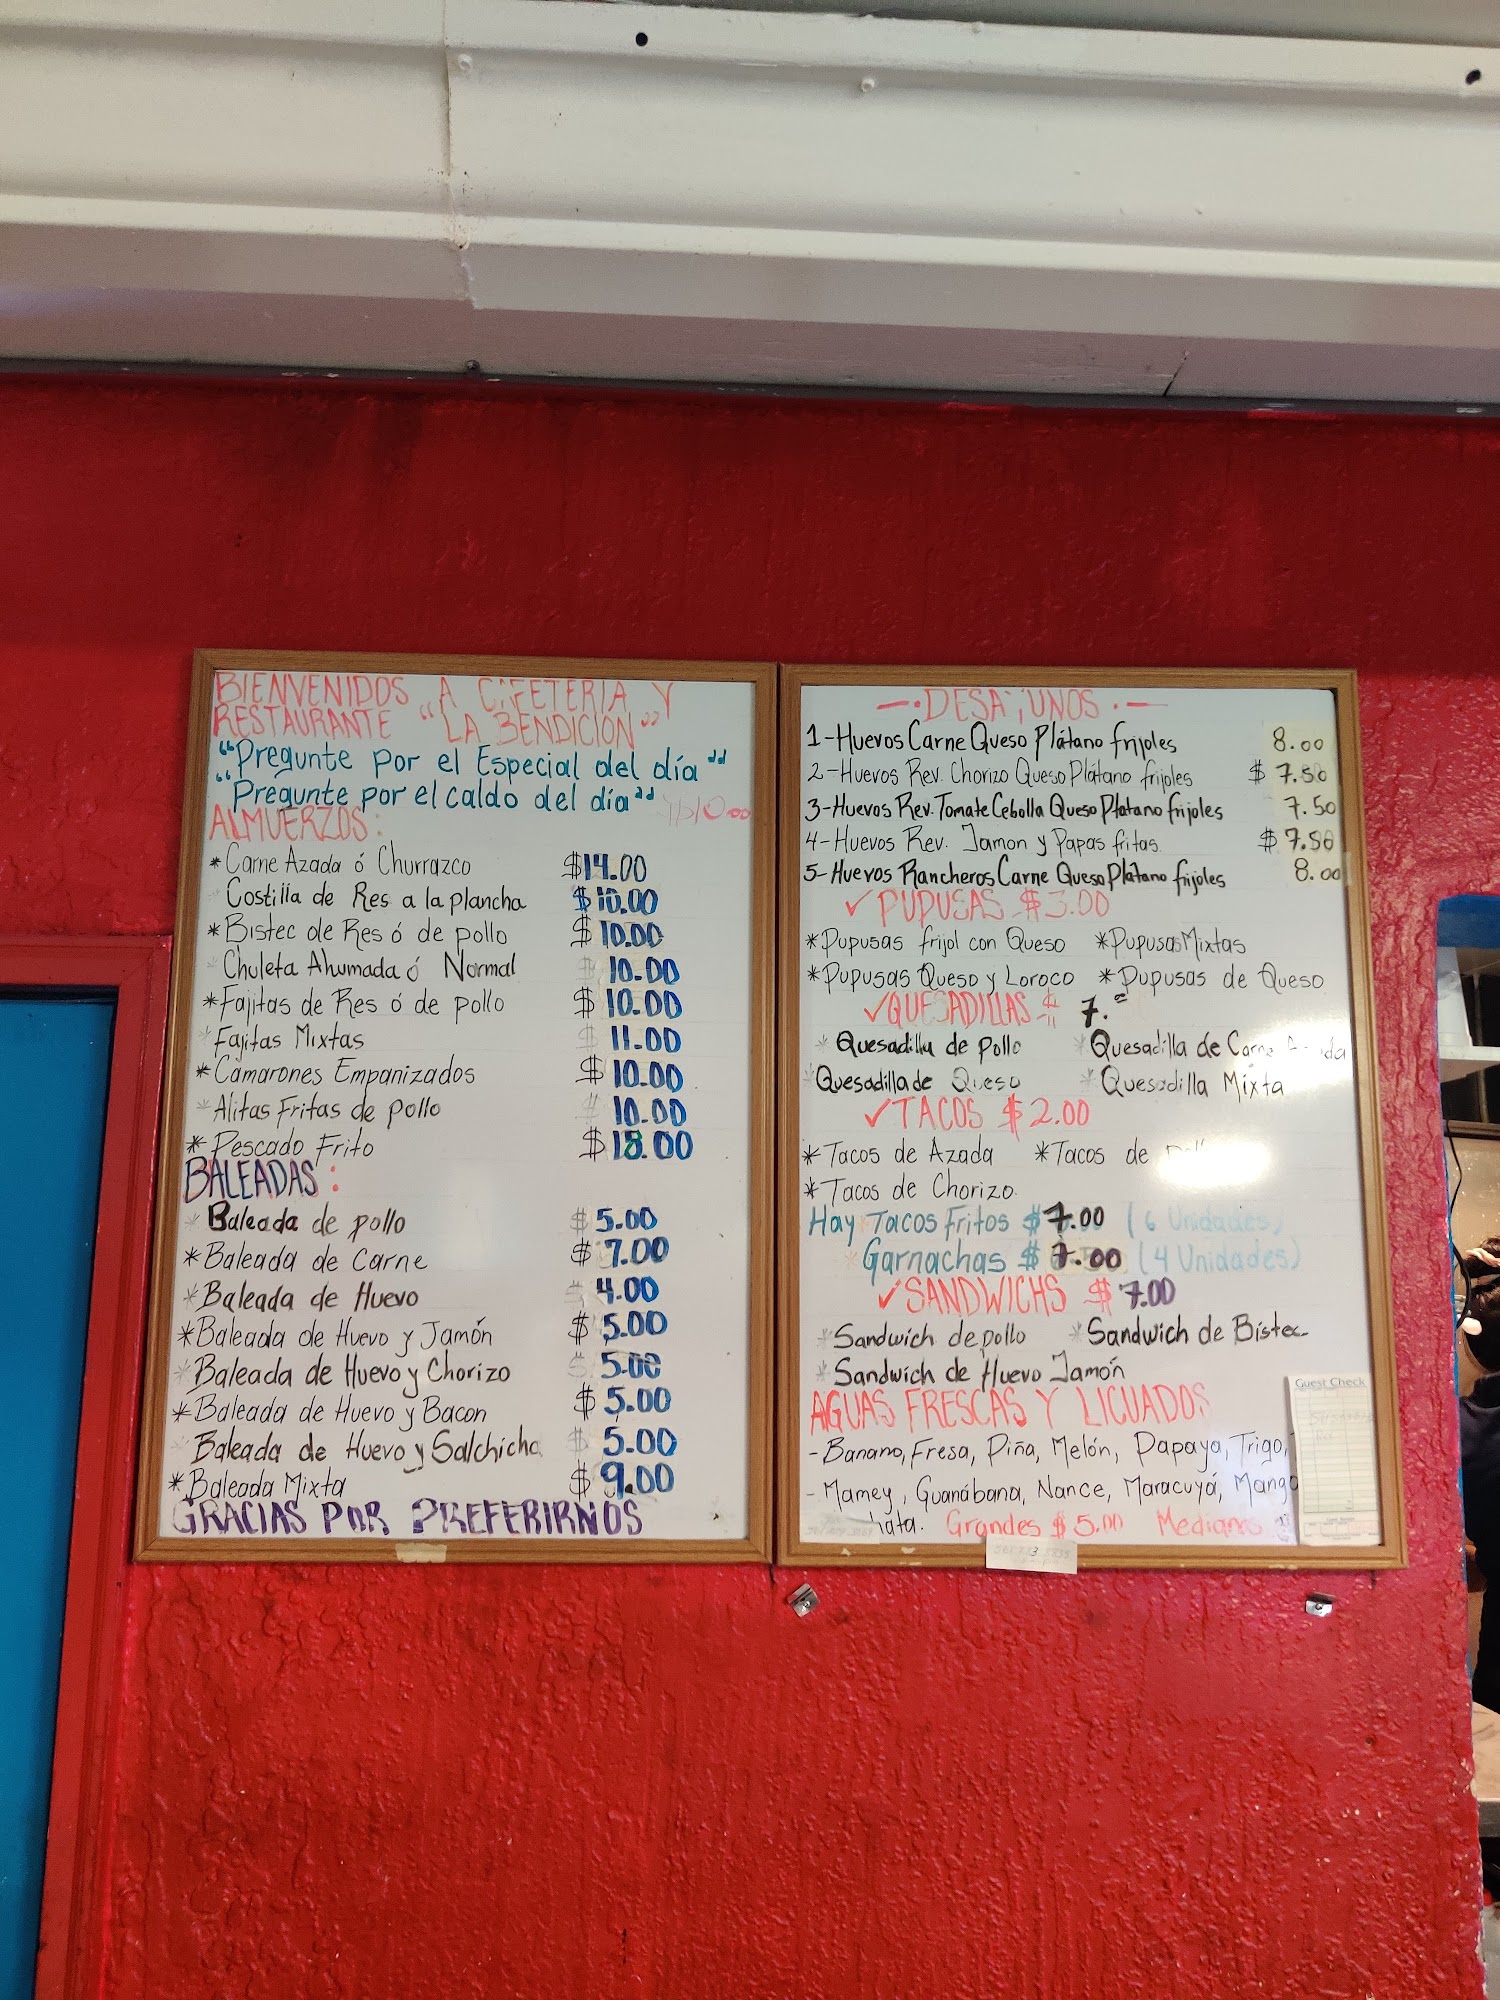 BIENVENIDOS "A CAFETERIA Y
RESTAURANTE "LA BENDICIÓN"
"Pregunte por el Especial del día"
"Pregunte por el caldo del día" 10.00
ALMUERZOS:
* Carne Azada ó Churrazco $14.00
Costilla de Res a la plancha $10.00
* Bistec de Res ó de pollo $10.00
Chuleta Ahumada ó Normal 10.00
* Fajitas de Res ó de pollo $10.00
* Fajitas Mixtas $11.00
* Camarones Empanizados $10.00
* Alitas Fritas de pollo $10.00
* Pescado Frito $18.00
BALEADAS:
* Baleada de pollo $5.00
* Baleada de Carne $7.00
* Baleada de Huevo $4.00
* Baleada de Huevo y Jamón $5.00
* Baleada de Huevo y Chorizo $5.00
* Baleada de Huevo y Bacon $5.00
* Baleada de Huevo y Salchicha $5.00
* Baleada Mixta $9.00
GRACIAS POR PREFERIRNOS
DESAYUNOS
1-Huevos Carne Queso Plátano frijoles 8.00
2-Huevos Rev. Chorizo Queso Plátano frijoles $7.50
3-Huevos Rev. Tomate Cebolla Queso Platano frijoles 7.50
4-Huevos Rev. Jamon y Papas fritas $7.50
5-Huevos Rancheros Carne Queso Plátano frijoles 8.00
✓ PUPUSAS $3.00
* Pupusas frijol con Queso * Pupusas Mixtas
* Pupusas Queso y Loroco * Pupusas de Queso
✓ QUESADILLAS $ 7.
* Quesadilla de pollo * Quesadilla de Carne
Quesadilla de Queso * Quesadilla Mixta
✓ TACOS $2.00
* Tacos de Azada * Tacos de
* Tacos de Chorizo.
Hay Tacos Fritos $7.00 (6 Unidades)
* Garnachas $7.00 (4 Unidades)
✓ SANDWICHS $7.00
* Sandwich de pollo * Sandwich de Bistec
* Sandwich de Huevo Jamón
AGUAS FRESCAS Y LICUADOS
- Banano, Fresa, Piña, Melón, Papaya, Trigo,
- Mamey, Guanábana, Nance, Maracuyá, Mango
hata. Grandes $5.00 Medianos
Guest Check